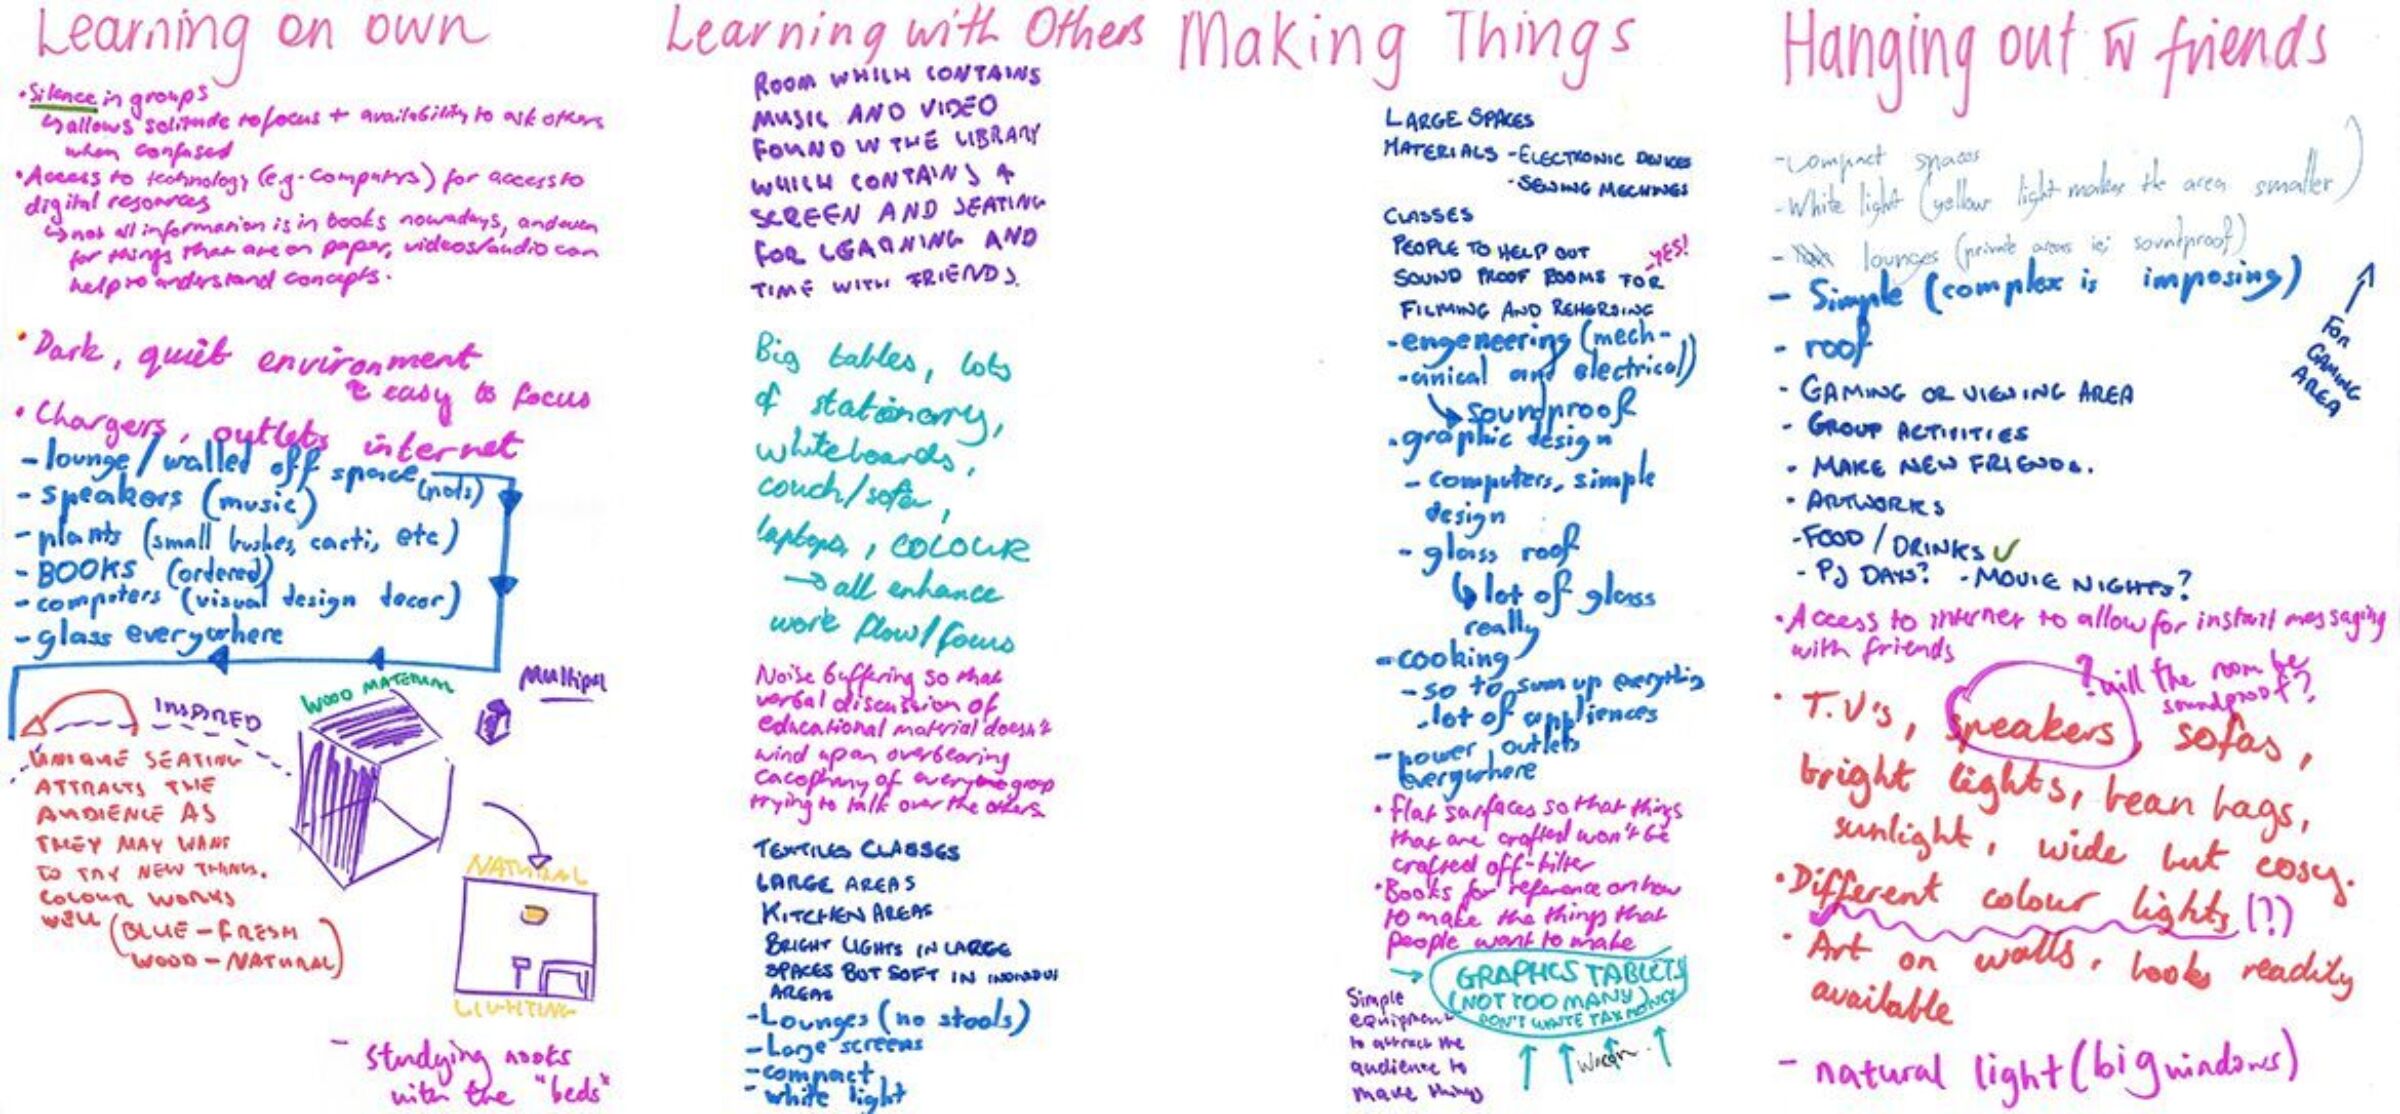 Learning on own
• Silence in groups
↳ allows solitude to focus + availability to ask others
when confused
• Access to technology (e.g. computers) for access to
digital resources
↳ not all information is in books nowadays, and even
for things that are on paper, videos/audio can
help to understand concepts.
• Dark, quiet environment
easy to focus
• Chargers, outlets internet
- lounge / walled off space (pods)
- speakers (music)
- plants (small bushes, cacti, etc)
- BOOKS (ordered)
- computers (visual design decor)
- glass everywhere
INSPIRED
WOOD MATERIAL
Multipul
UNIQUE SEATING
ATTRACTS THE
AUDIENCE AS
THEY MAY WANT
TO TRY NEW THINGS.
COLOUR WORKS
WELL (BLUE - FRESH
WOOD - NATURAL)
NATURAL
LIGHTING
- studying nooks
with the "beds"
Learning with Others
ROOM WHICH CONTAINS
MUSIC AND VIDEO
FOUND IN THE LIBRARY
WHICH CONTAINS A
SCREEN AND SEATING
FOR LEARNING AND
TIME WITH FRIENDS.
Big tables, lots
of stationary,
whiteboards,
couch/sofa,
laptops, COLOUR
→ all enhance
work flow/focus
Noise buffering so that
verbal discussion of
educational material doesn't
wind up an overbearing
cacophany of everyone group
trying to talk over the others
TEXTILES CLASSES
LARGE AREAS
KITCHEN AREAS
BRIGHT LIGHTS IN LARGE
SPACES BUT SOFT IN
AREAS
- Lounges (no stools)
- Large screens
- compact
- white light
Making Things
LARGE SPACES
MATERIALS - ELECTRONIC DEVICES
- SEWING MECHINES
CLASSES
PEOPLE TO HELP OUT
YES!
SOUND PROOF ROOMS FOR
FILMING AND REHERSING
- engeneering (mech-
-anical and electrical)
↳ soundproof
- graphic design
- computers, simple
design
- glass roof
↳ lot of glass
really
- cooking
- so to sum up everything
- lot of appliences
- power outlets
everywhere
• Flat surfaces so that things
that are crafted won't be
crafted off-kilter
• Books for reference on how
to make the things that
people want to make
→ GRAPHCS TABLETS
(NOT TOO MANY
DON'T WASTE TAX MONEY
Simple
equipment
to attract the
audience to
make things
Hanging out w friends
- compact spaces
- White light (yellow light makes the area smaller)
- lounges (private areas ie; soundproof)
- Simple (complex is imposing)
- roof
FOR
GAMING
AREA
- GAMING OR VIEWING AREA
- GROUP ACTIVITIES
- MAKE NEW FRIENDS.
- ARTWORKS
- FOOD / DRINKS ✓
- PJ DAYS? - MOVIE NIGHTS?
• Access to internet to allow for instant messaging
with friends
? will the room be
soundproof?
• T.V's, speakers, sofas,
bright lights, bean bags,
sunlight, wide but cosy.
• Different colour lights (?)
• Art on walls, books readily
available
- natural light (big windows)